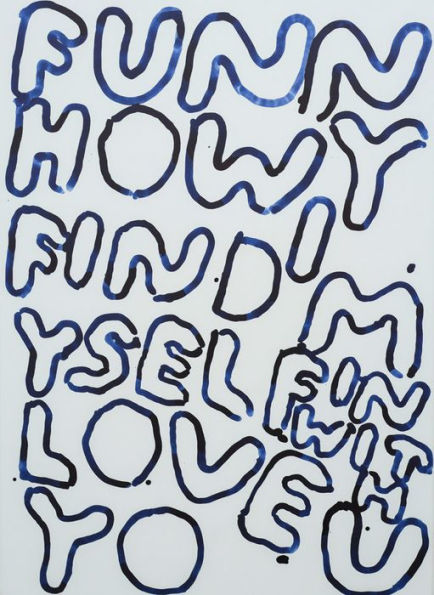 FUNN
HOW Y
FIND I
M
YSELF IN
LOVE WITH
YOU